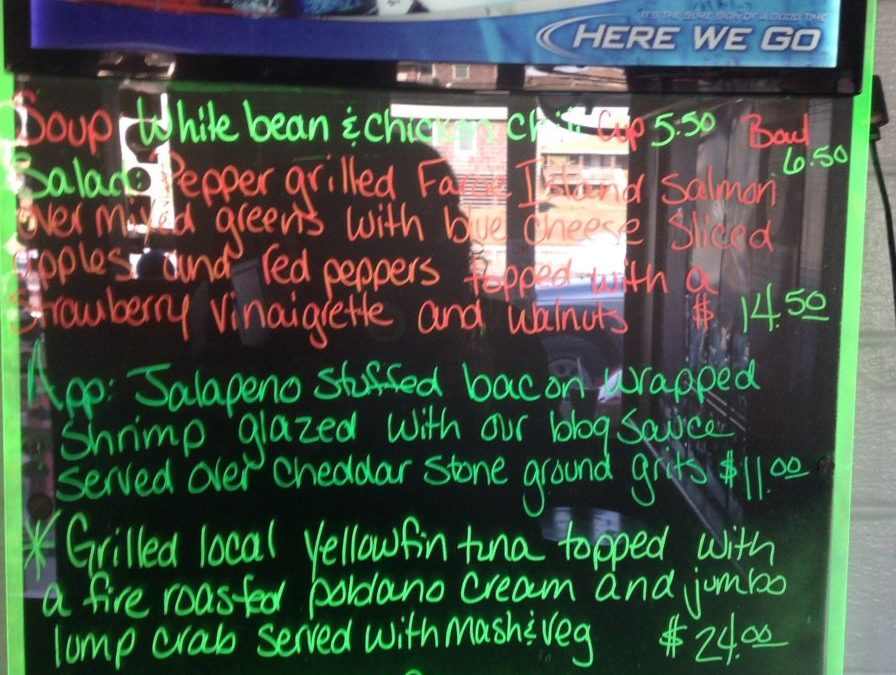 IT'S THE SURE SIGN OF A GOOD TIME
HERE WE GO
Soup White bean & chicken chili Cup 5.50 Bowl 6.50
Salad: Pepper grilled Faroe Island Salmon
over mixed greens with blue cheese Sliced
apples and red peppers topped with a
Strawberry Vinaigrette and walnuts $ 14.50
App: Jalapeno stuffed bacon wrapped
Shrimp glazed with our bbq Sauce
served over cheddar stone ground grits $11.00
* Grilled local yellowfin tuna topped with
a fire roasted poblano cream and jumbo
lump crab served with Mash & veg $24.00